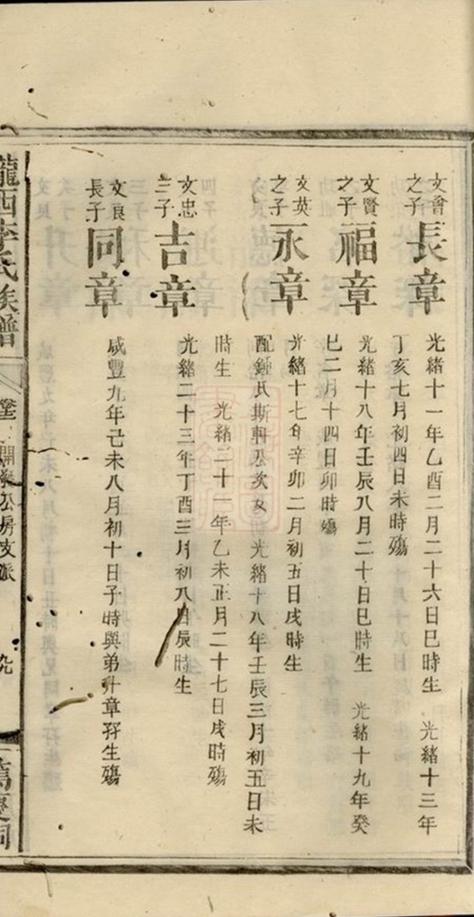 文會
之子
長章
光緒十一年乙酉二月二十六日巳時生 光緒十三年
丁亥七月初四日未時殤
文賢
之子
福章
光緒十八年壬辰八月二十日巳時生 光緒十九年癸
巳二月十四日卯時殤
文英
之子
永章
光緒十七年辛卯二月初五日戌時生
配鍾氏斯軒公次女 光緒十八年壬辰三月初五日未
時生 光緒二十一年乙未正月二十七日戌時殤
文忠
三子
吉章
光緒二十三年丁酉三月初八日辰時生
文良
長子
同章
咸豐九年己未八月初十日子時與弟升章孖生殤
隴西李氏族譜
公房支派
九
篤慶祠